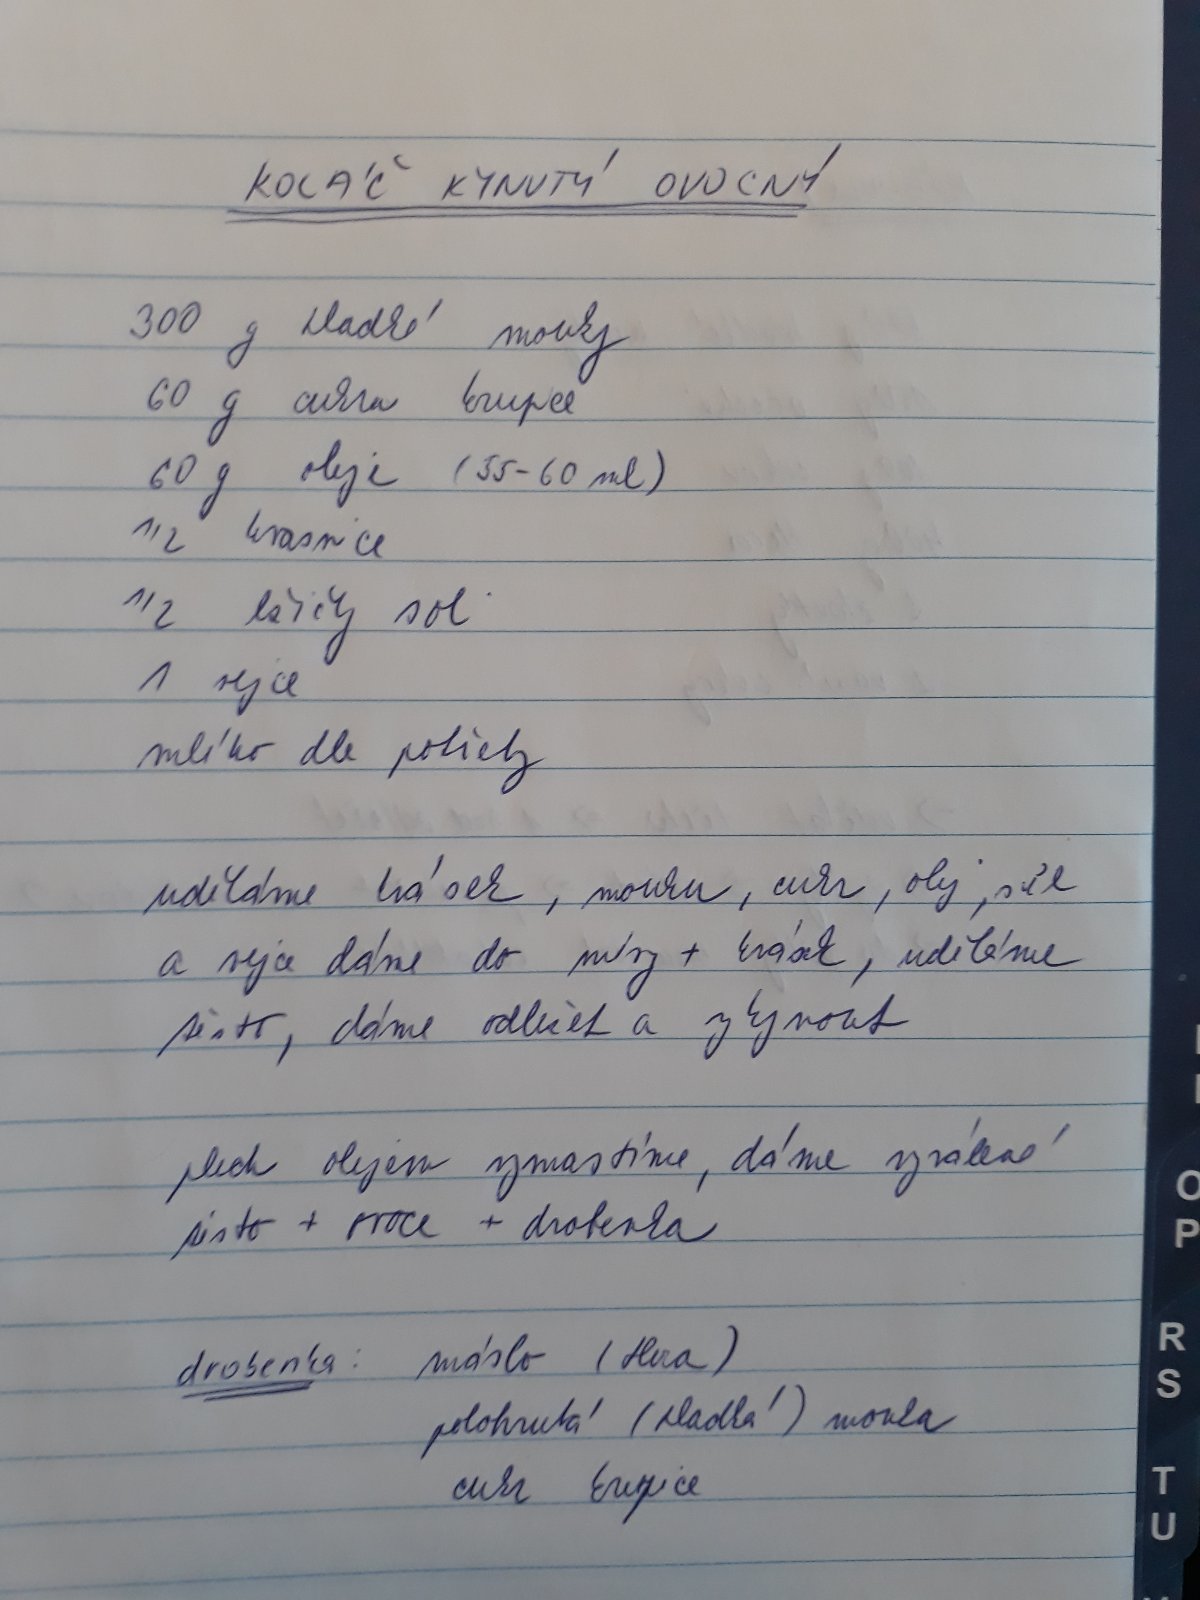 KOLÁČ KYNUTÝ OVOCNÝ
300 g hladké mouky
60 g cukru krupice
60 g oleje (55-60 ml)
1/2 krasnice
1/2 lžičky soli
1 vejce
mlíko dle potřeby
uděláme kvásek, mouku, cukr, olej, sůl
a vejce dáme do mísy + kvásek, uděláme
těsto, dáme odležet a vykynout
plech olejem vymastíme, dáme vyválené
těsto + ovoce + drobenka
drobenka: máslo (Hera)
polohrubá (hladká) mouka
cukr krupice
O
P
R
S
T
U